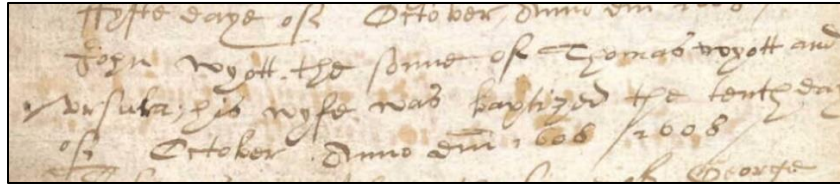 ffyfte daye of October Anno dm 1608
John wyott the sonne of Thomas wyott and
vrsula his wyfe was baptized the tenth day
of October Anno dm 1608 / 1608 /
George